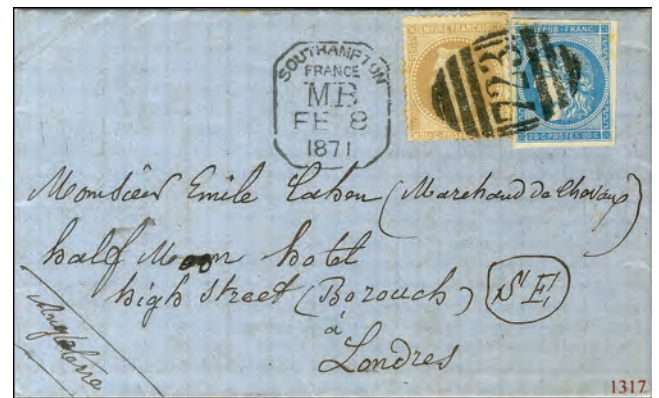 SOUTHAMPTON
FRANCE
MB
FE 8
1871
EMPIRE FRANÇAIS
REPUB · FRANC
723
20·C·POSTES·20·C
Monsieur Emile Cahen (Marchand de Chevaux)
half Moon hotel
high street (Borouch) SE
à
Londres
Angleterre
1317